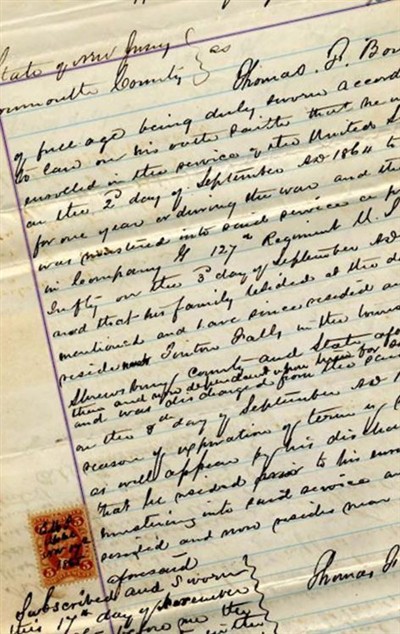 State of New Jersey } ss
Monmouth County
Thomas. F. Bow
of full age being duly sworn accord
to law on his oath saith that he w
enrolled in the service of the United S
on the 2d day of September AD 1864 to
for one year or during the war and th
was mustered into said service as p
in Company G 127th Regiment U. S
Infty on the 3d day of September AD
and that his family resided at the d
mentioned and have since resided an
reside Tinton Falls in the town
Shrewsbury, County and State afo
then and now dependent upon him for su
and was discharged from the said
on the 8th day of September AD 1
reason of expiration of term of
as will appear by his discha
that he resided prior to his enro
mustering into said service an
service and now resides near
aforesaid
Thomas F
Subscribed and Sworn
this 17th day of November
before me the
written
5
5